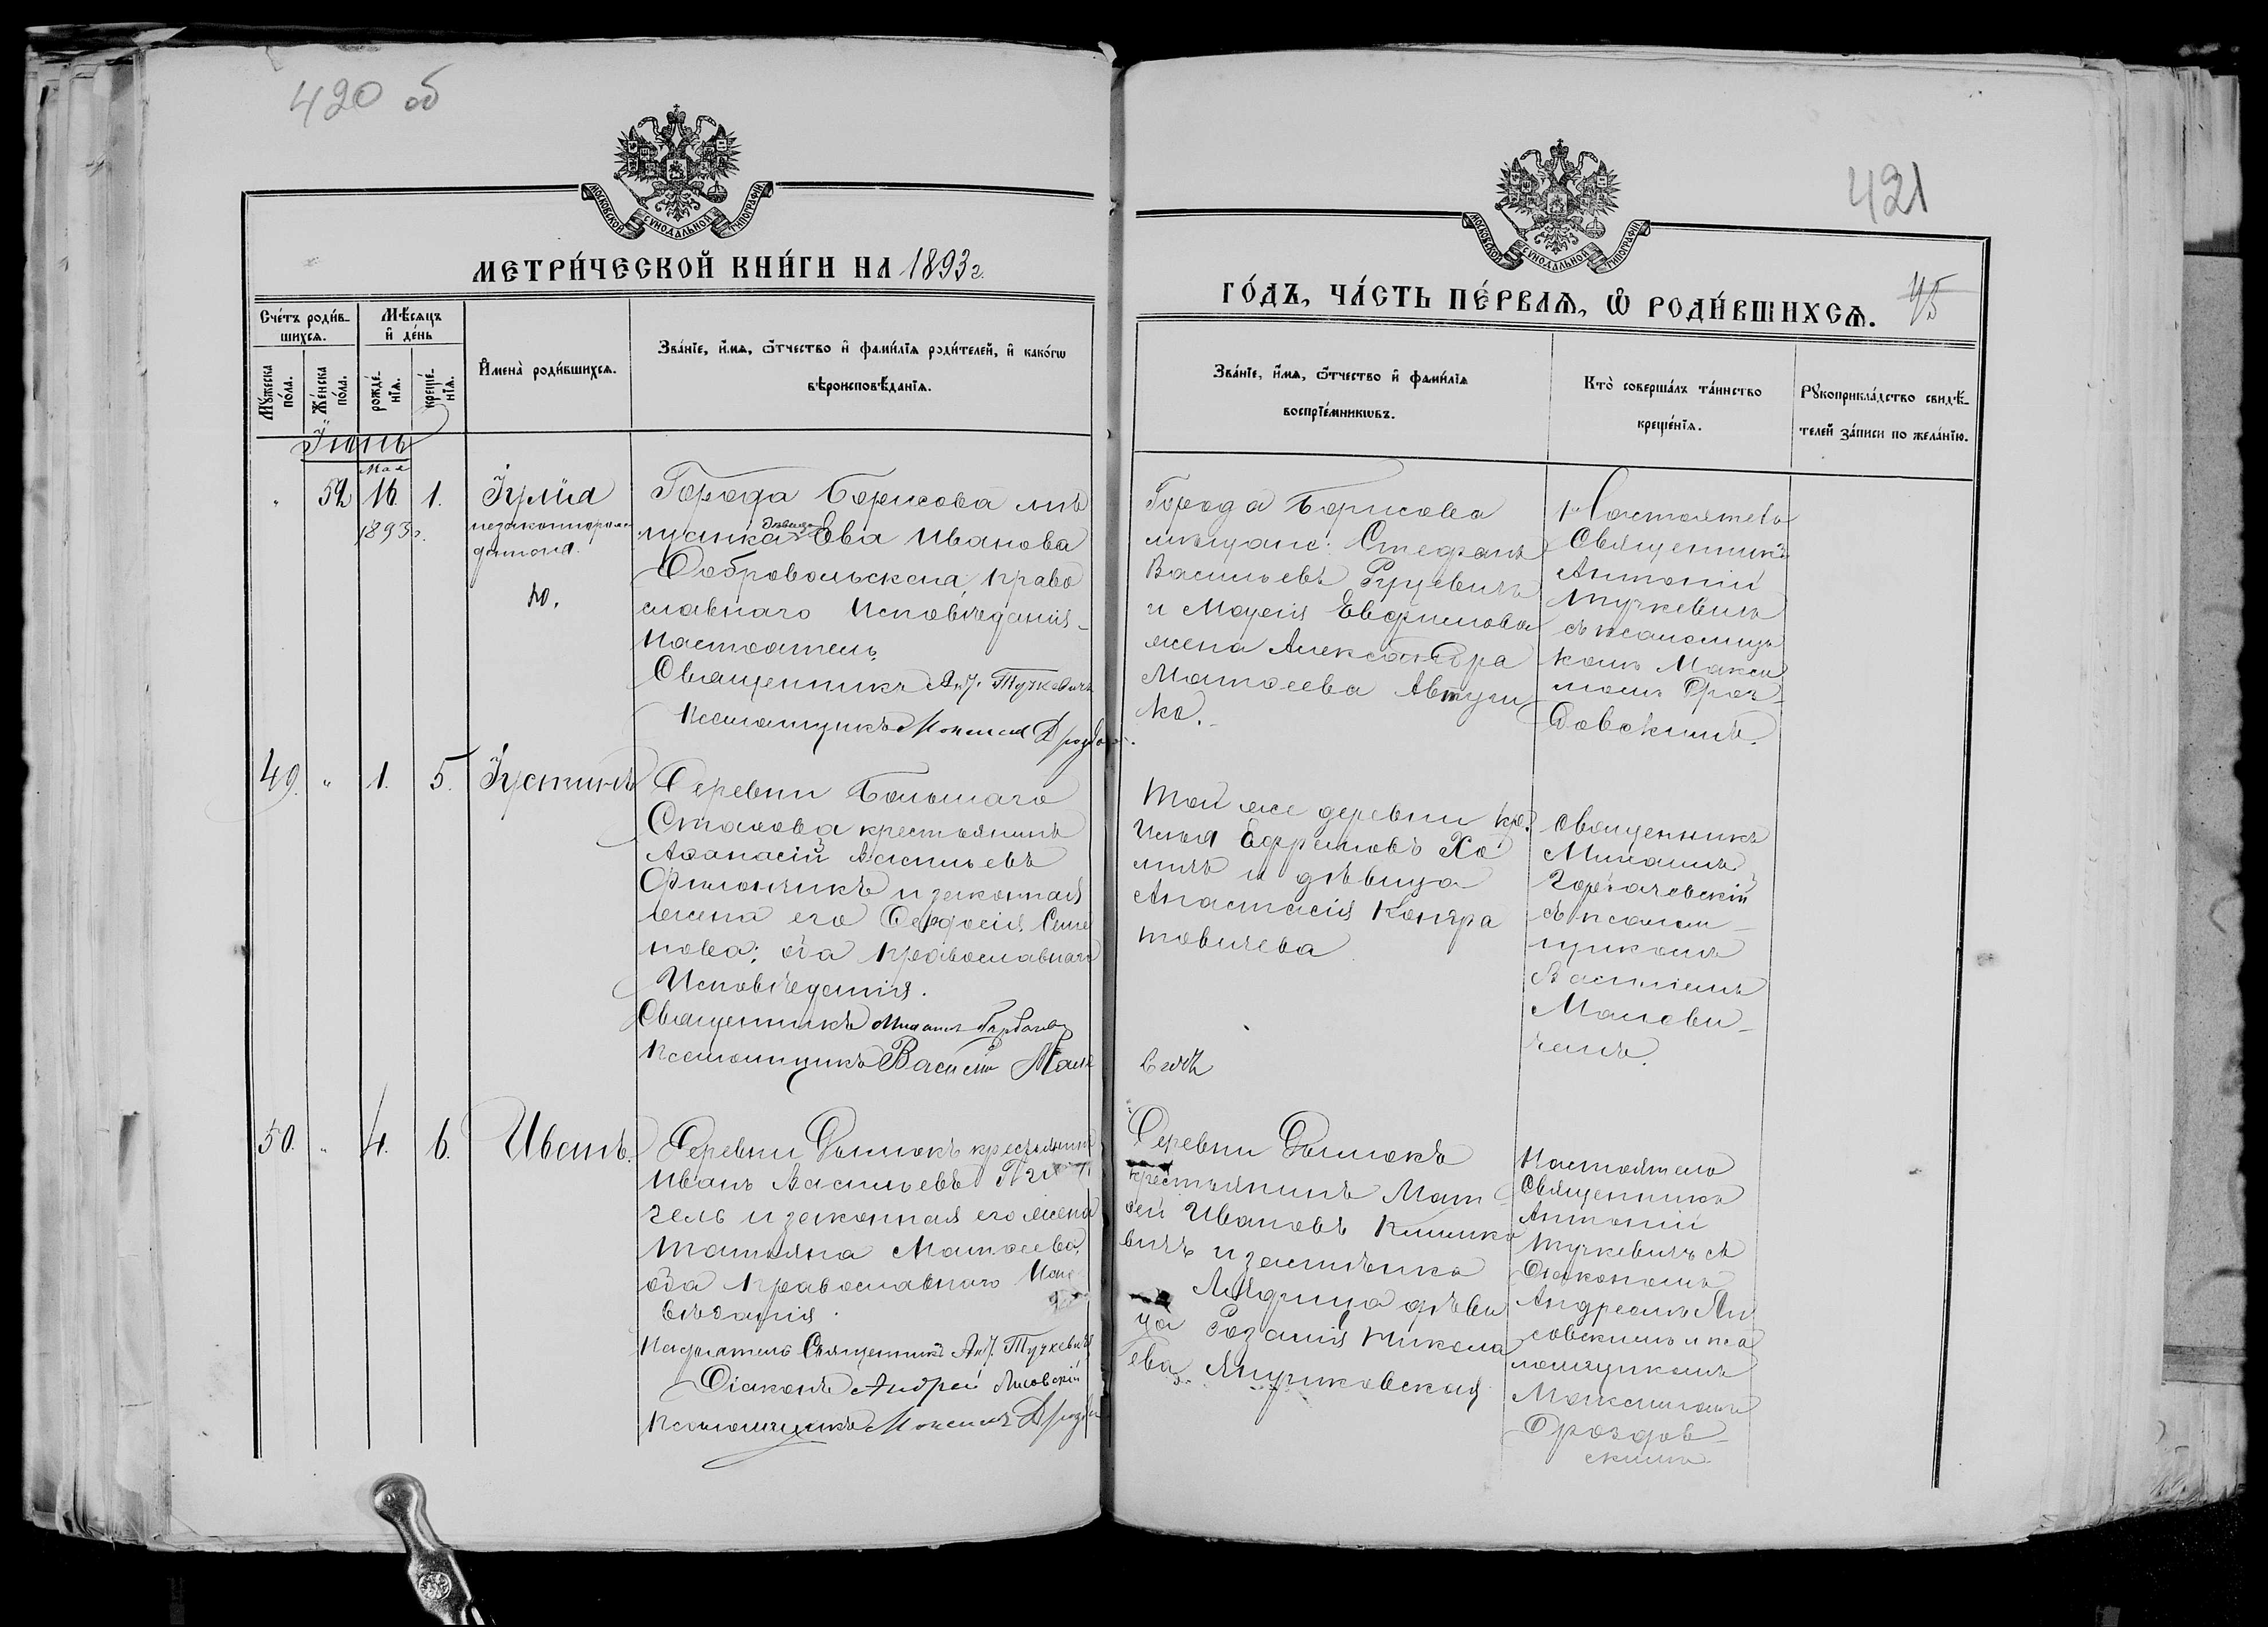 420 об
МОСКОВСКОЙ СѴНОДАЛЬНОЙ ТИПОГРАФІИ
МЕТРИ́ЧЕСКОЙ КНИ́ГИ НА 1893 г.
Сче́тъ роди́вшихсѧ.
Мѣ́сѧцъ и҆ де́нь
Мꙋ́жеска по́ла.
Же́нска по́ла.
рожде́нїѧ.
креще́нїѧ.
И҆мена̀ роди́вшихсѧ.
Зва́нїе, и҆́мѧ, ѻ҆́тчество и҆ фами́лїѧ роди́телей, и҆ како́гѡ
вѣроисповѣ́данїѧ.
Іюнь
Мая
" 52 16. 1.
1893 г.
Іулія
незаконнорож
денная.
Ю.
Города Борисова мѣ
щанка дѣвица Ева Иванова
Добровольская, право
славнаго Исповѣданія
Настоятель
Священникъ Ант. Тучкевичъ
Псаломщикъ Максимъ Дроздов.
49. " 1. 5. Іустинъ
Деревни Большаго
Стахова крестьянинъ
Аѳанасій Васильевъ
Филончикъ и законная
жена его Ѳеодосія Семе
нова; оба православнаго
Исповѣданія.
Священникъ Михаилъ
Псаломщикъ Василій
50. " 4. 6. Иванъ.
Деревни Дымокъ крестьянинъ
Иванъ Васильевъ
гель и законная его жена
Татьяна Матѳеева,
оба православнаго Испо
вѣданія.
Настоятель Священникъ Ант. Тучкевичъ
Діаконъ Андрей Лисовскій
Псаломщикъ Максимъ Дрозд
421
МОСКОВСКОЙ СѴНОДАЛЬНОЙ ТИПОГРАФІИ
ГО́ДЪ, ЧА́СТЬ ПЕ́РВАѦ, Ѡ҆ РОДИ́ВШИХСѦ.
45
Зва́нїе, и҆́мѧ, ѻ҆́тчество и҆ фами́лїѧ
воспрїе́мникѡвъ.
Кто̀ соверша́лъ та́инство
креще́нїѧ.
Рꙋкоприкла́дство свидѣ́-
телей за́писи по жела́нїю.
Города Борисова
мѣщане: Стефанъ
Васильевъ Руцевичъ
и Марія Евфимова
жена Александра
Матѳеева Автуш
ко.
Настоятель
Священникъ
Антоній
Тучкевичъ
съ псаломщи
комъ Макси
момъ Дроз-
довскимъ.
Той же деревни кр.
Илья Ефремовъ Хо
мичъ и дѣвица
Анастасія Кондра
товичева
Священникъ
Михаилъ
Горбачевскій
съ псалом-
щикомъ
Василіемъ
Малеви-
чемъ.
Деревни Дымокъ
крестьянинъ Мат
ѳей Ивановъ Климко
вичъ и застѣнка
Лядища дѣви
ца Розалія Никола
ева Янушковская
Настоятель
Священникъ
Антоній
Тучкевичъ съ
Діакономъ
Андреемъ Ли
совскимъ и пса
ломщикомъ
Максимомъ
Дроздов-
скимъ.